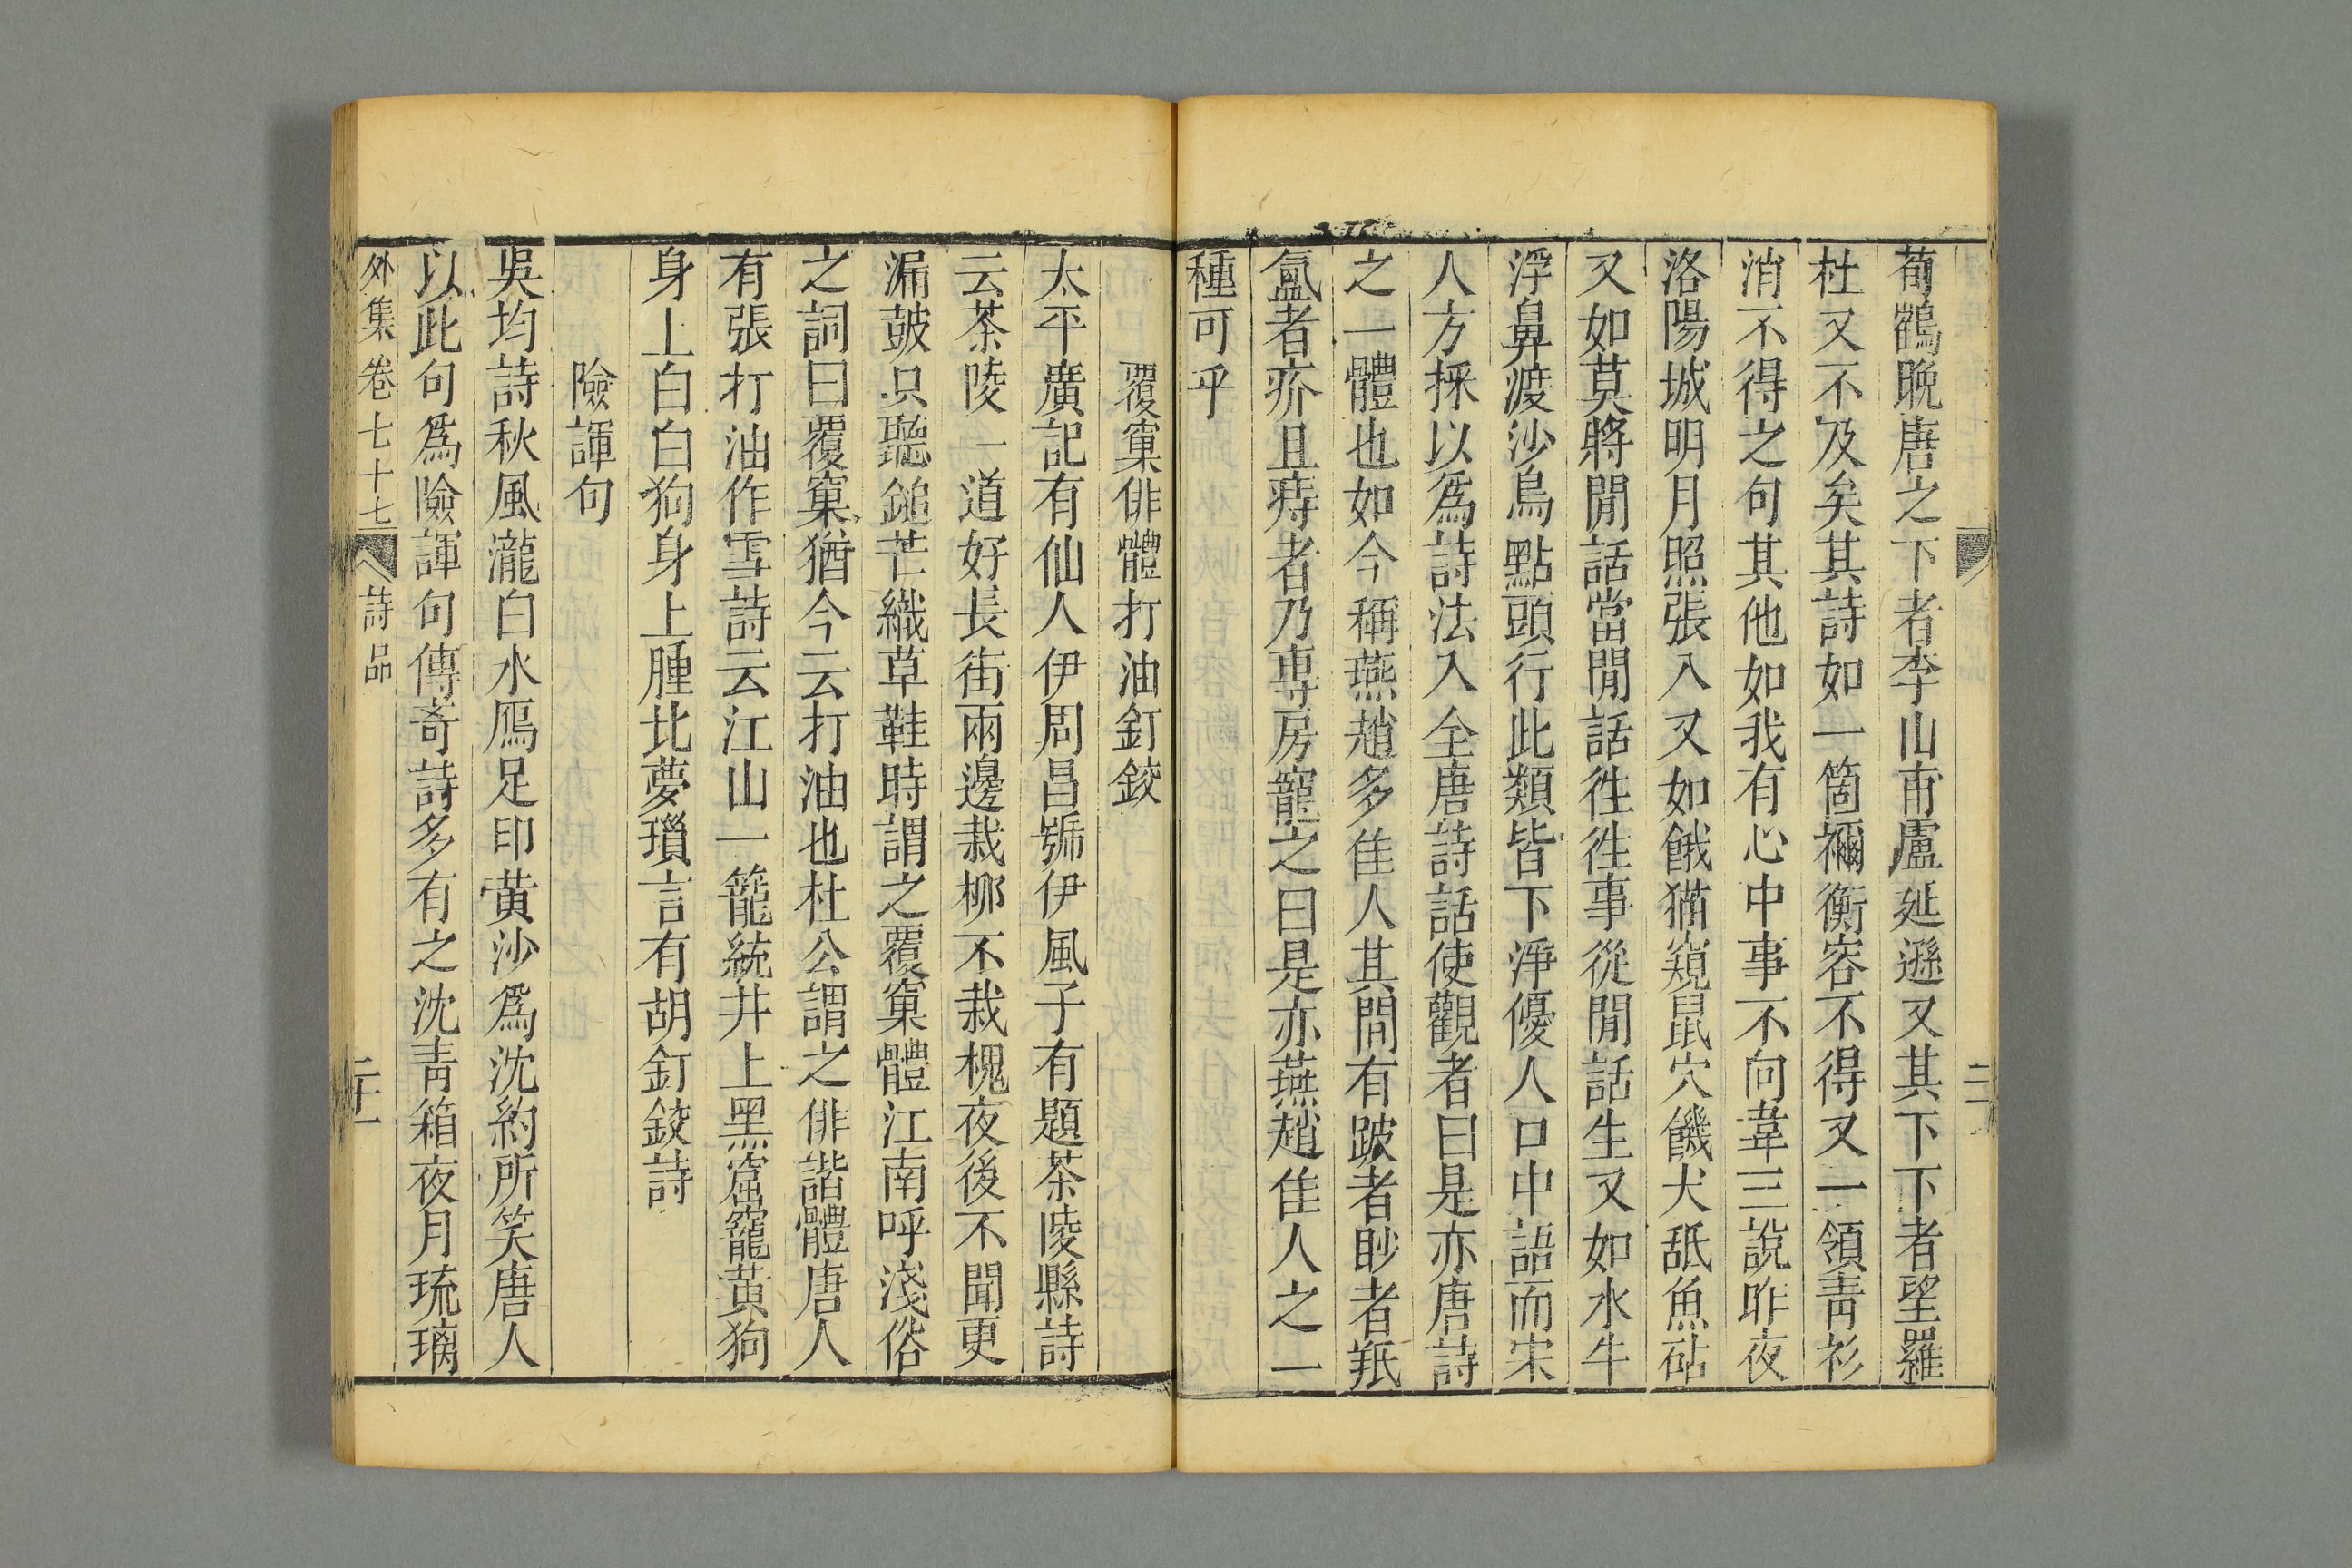 荀鶴晚唐之下者李山甫盧延遜又其下下者望羅
杜又不及矣其詩如一箇禰衡容不得又一領靑衫
消不得之句其他如我有心中事不向韋三說昨夜
洛陽城明月照張八又如餓猫窺鼠穴饑犬舐魚砧
又如莫將閒話當閒話徃徃事從閒話生又如水牛
浮鼻渡沙鳥點頭行此類皆下淨優人口中語而宋
人方採以爲詩法入全唐詩話使觀者曰是亦唐詩
之一體也如今稱燕趙多佳人其間有跛者眇者羝
氳者疥且痔者乃專房寵之曰是亦燕趙佳人之一
種可乎
覆窠俳體打油釘鉸
太平廣記有仙人伊周昌號伊風子有題茶陵縣詩
云茶陵一道好長街兩邊栽柳不栽槐夜後不聞更
漏皷只聽鎚芒織草鞋時謂之覆窠體江南呼淺俗
之詞曰覆窠猶今云打油也杜公謂之俳諧體唐人
有張打油作雪詩云江山一籠統井上黑窟窿黃狗
身上白白狗身上腫北夢瑣言有胡釘鉸詩
險諢句
吳均詩秋風瀧白水鴈足印黄沙爲沈約所笑唐人
以此句爲險諢句傳奇詩多有之沈靑箱夜月琉璃
外集卷七十七 詩品 二十一